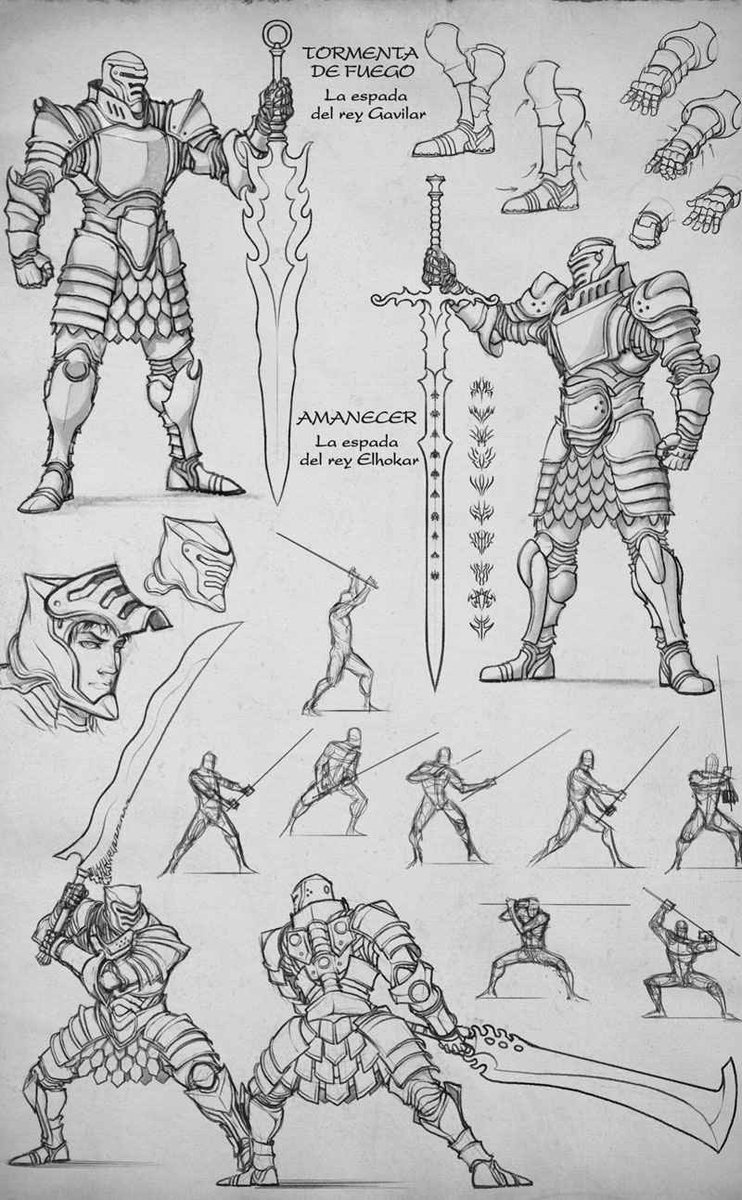 TORMENTA
DE FUEGO
La espada
del rey Gavilar
AMANECER
La espada
del rey Elhokar